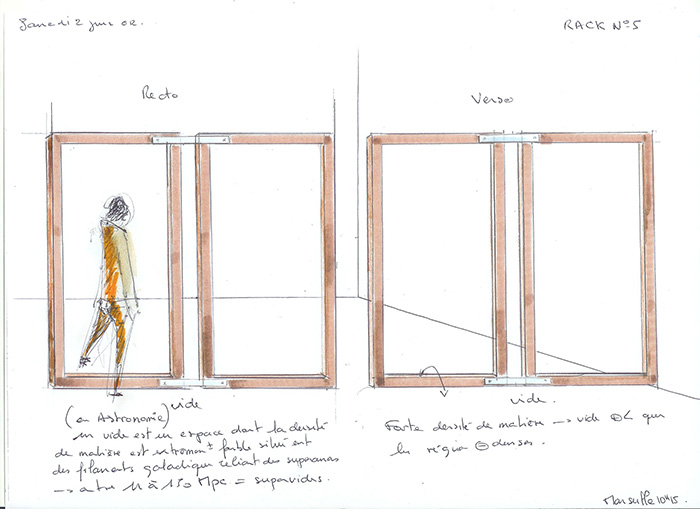 Samedi 2 juin 02.
RACK N°5
Recto
Verso
(en Astronomie) vide
un vide est un espace dont la densité
de matière est extrêmem ± faible situé ent
des filaments galactique reliant des superamas
→ entre 11 à 150 Mpc = supervides.
vide.
Forte densité de matière → vide ⊕ < que
les région ⊖ denses.
Marseille 10H15.